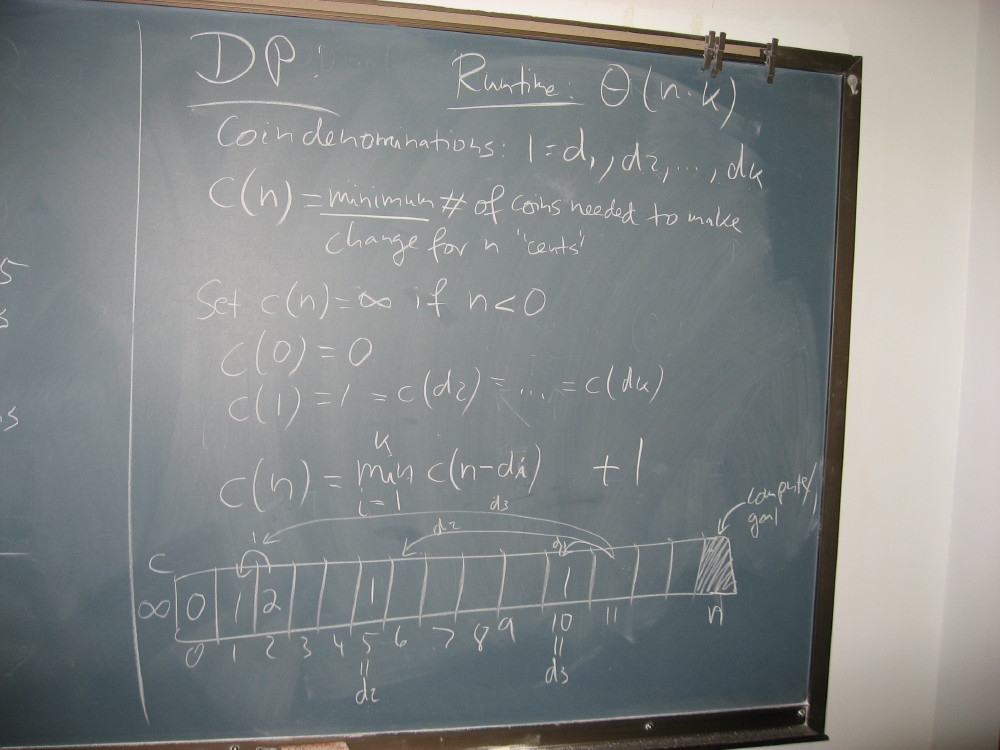 DP:
Runtime: Θ(n·k)
Coin denominations: 1=d1, d2, ..., dk
C(n) = minimum # of coins needed to make
change for n "cents"
Set c(n)=∞ if n<0
C(0)=0
C(1)=1 = c(d2) = ... = c(dk)
C(n) = min c(n-di) + 1
k
i=1
d3
d2
1
compute/
goal
C
∞ 0 1 2 1 1
0 1 2 3 4 5 6 7 8 9 10 11 n
= =
d2 d3
5
s